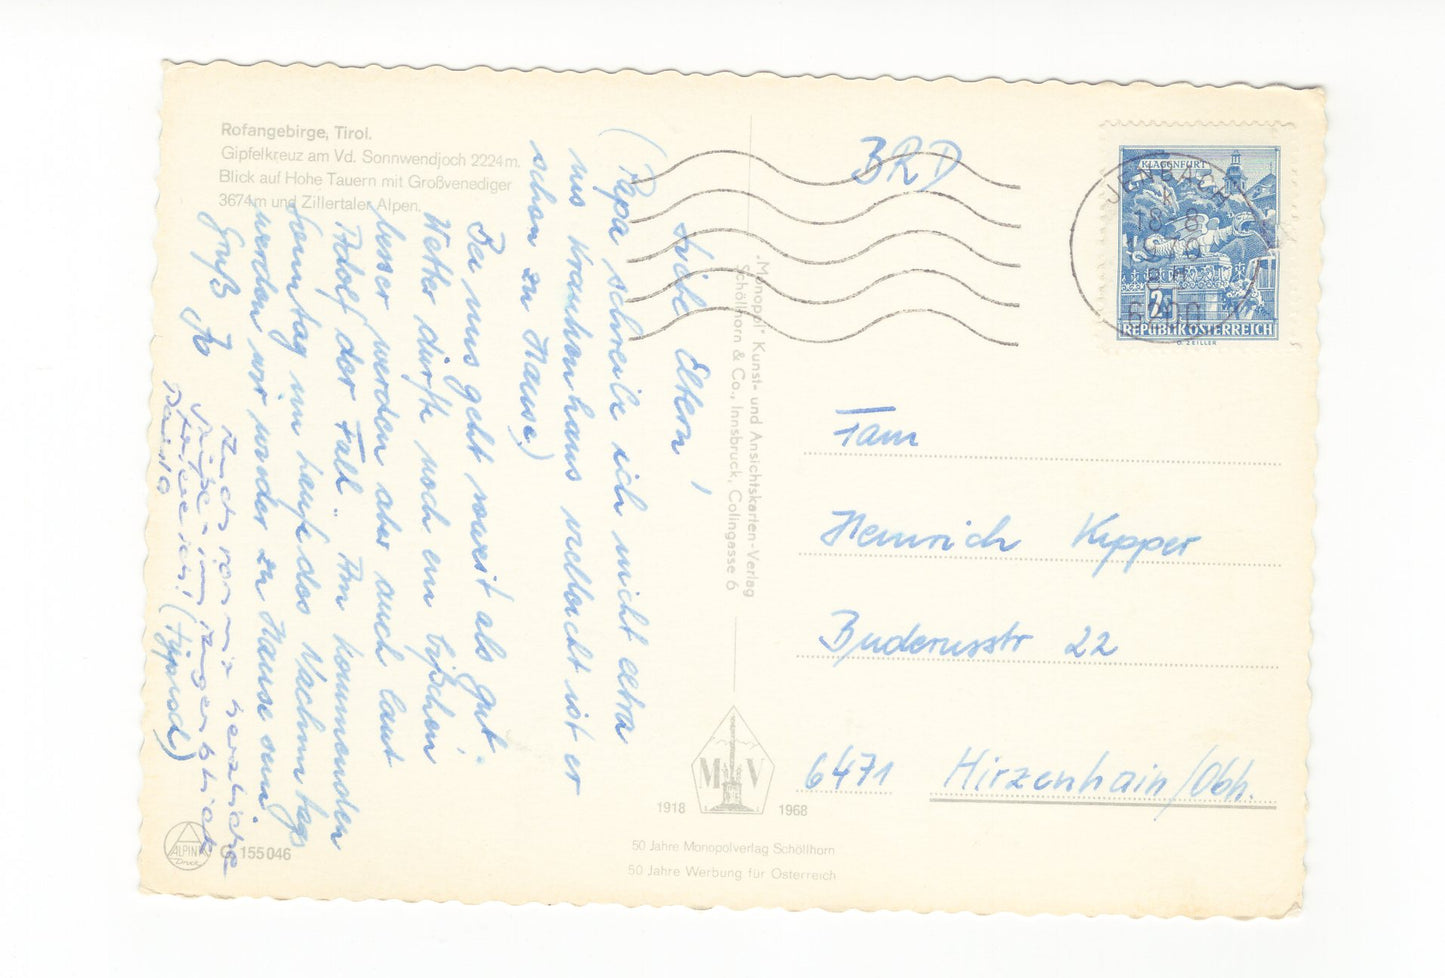 Rofangebirge, Tirol.
Gipfelkreuz am Vd. Sonnwendjoch 2224 m.
Blick auf Hohe Tauern mit Großvenediger
3674 m und Zillertaler Alpen.
(Papa schreibe ich nicht extra
ins Krankenhaus vielleicht ist er
schon zu Hause)
Liebe Eltern!
Bei uns geht soweit als gut.
Wetter dürfte noch ein bißchen
besser werden aber auch laut
Adolf der Fall". Am kommenden
Sonntag im Laufe des Nachmittags
werden wir wieder zu Hause sein
Gruß
Auch von mir herzliche
Grüße im Augenblick
"Monopol" Kunst- und Ansichtskarten-Verlag
Schöllhorn & Co., Innsbruck, Colingasse 6
BRD
KLAGENFURT
2S
REPUBLIK ÖSTERREICH
O. ZEILLER
JENBACH
18 8
6200
Fam
Heinrich Kupper
Buderusstr 22
6471 Hirzenhain/Obh.
M V
1918 1968
50 Jahre Monopolverlag Schöllhorn
50 Jahre Werbung für Österreich
ALPIN
Druck
C 155046